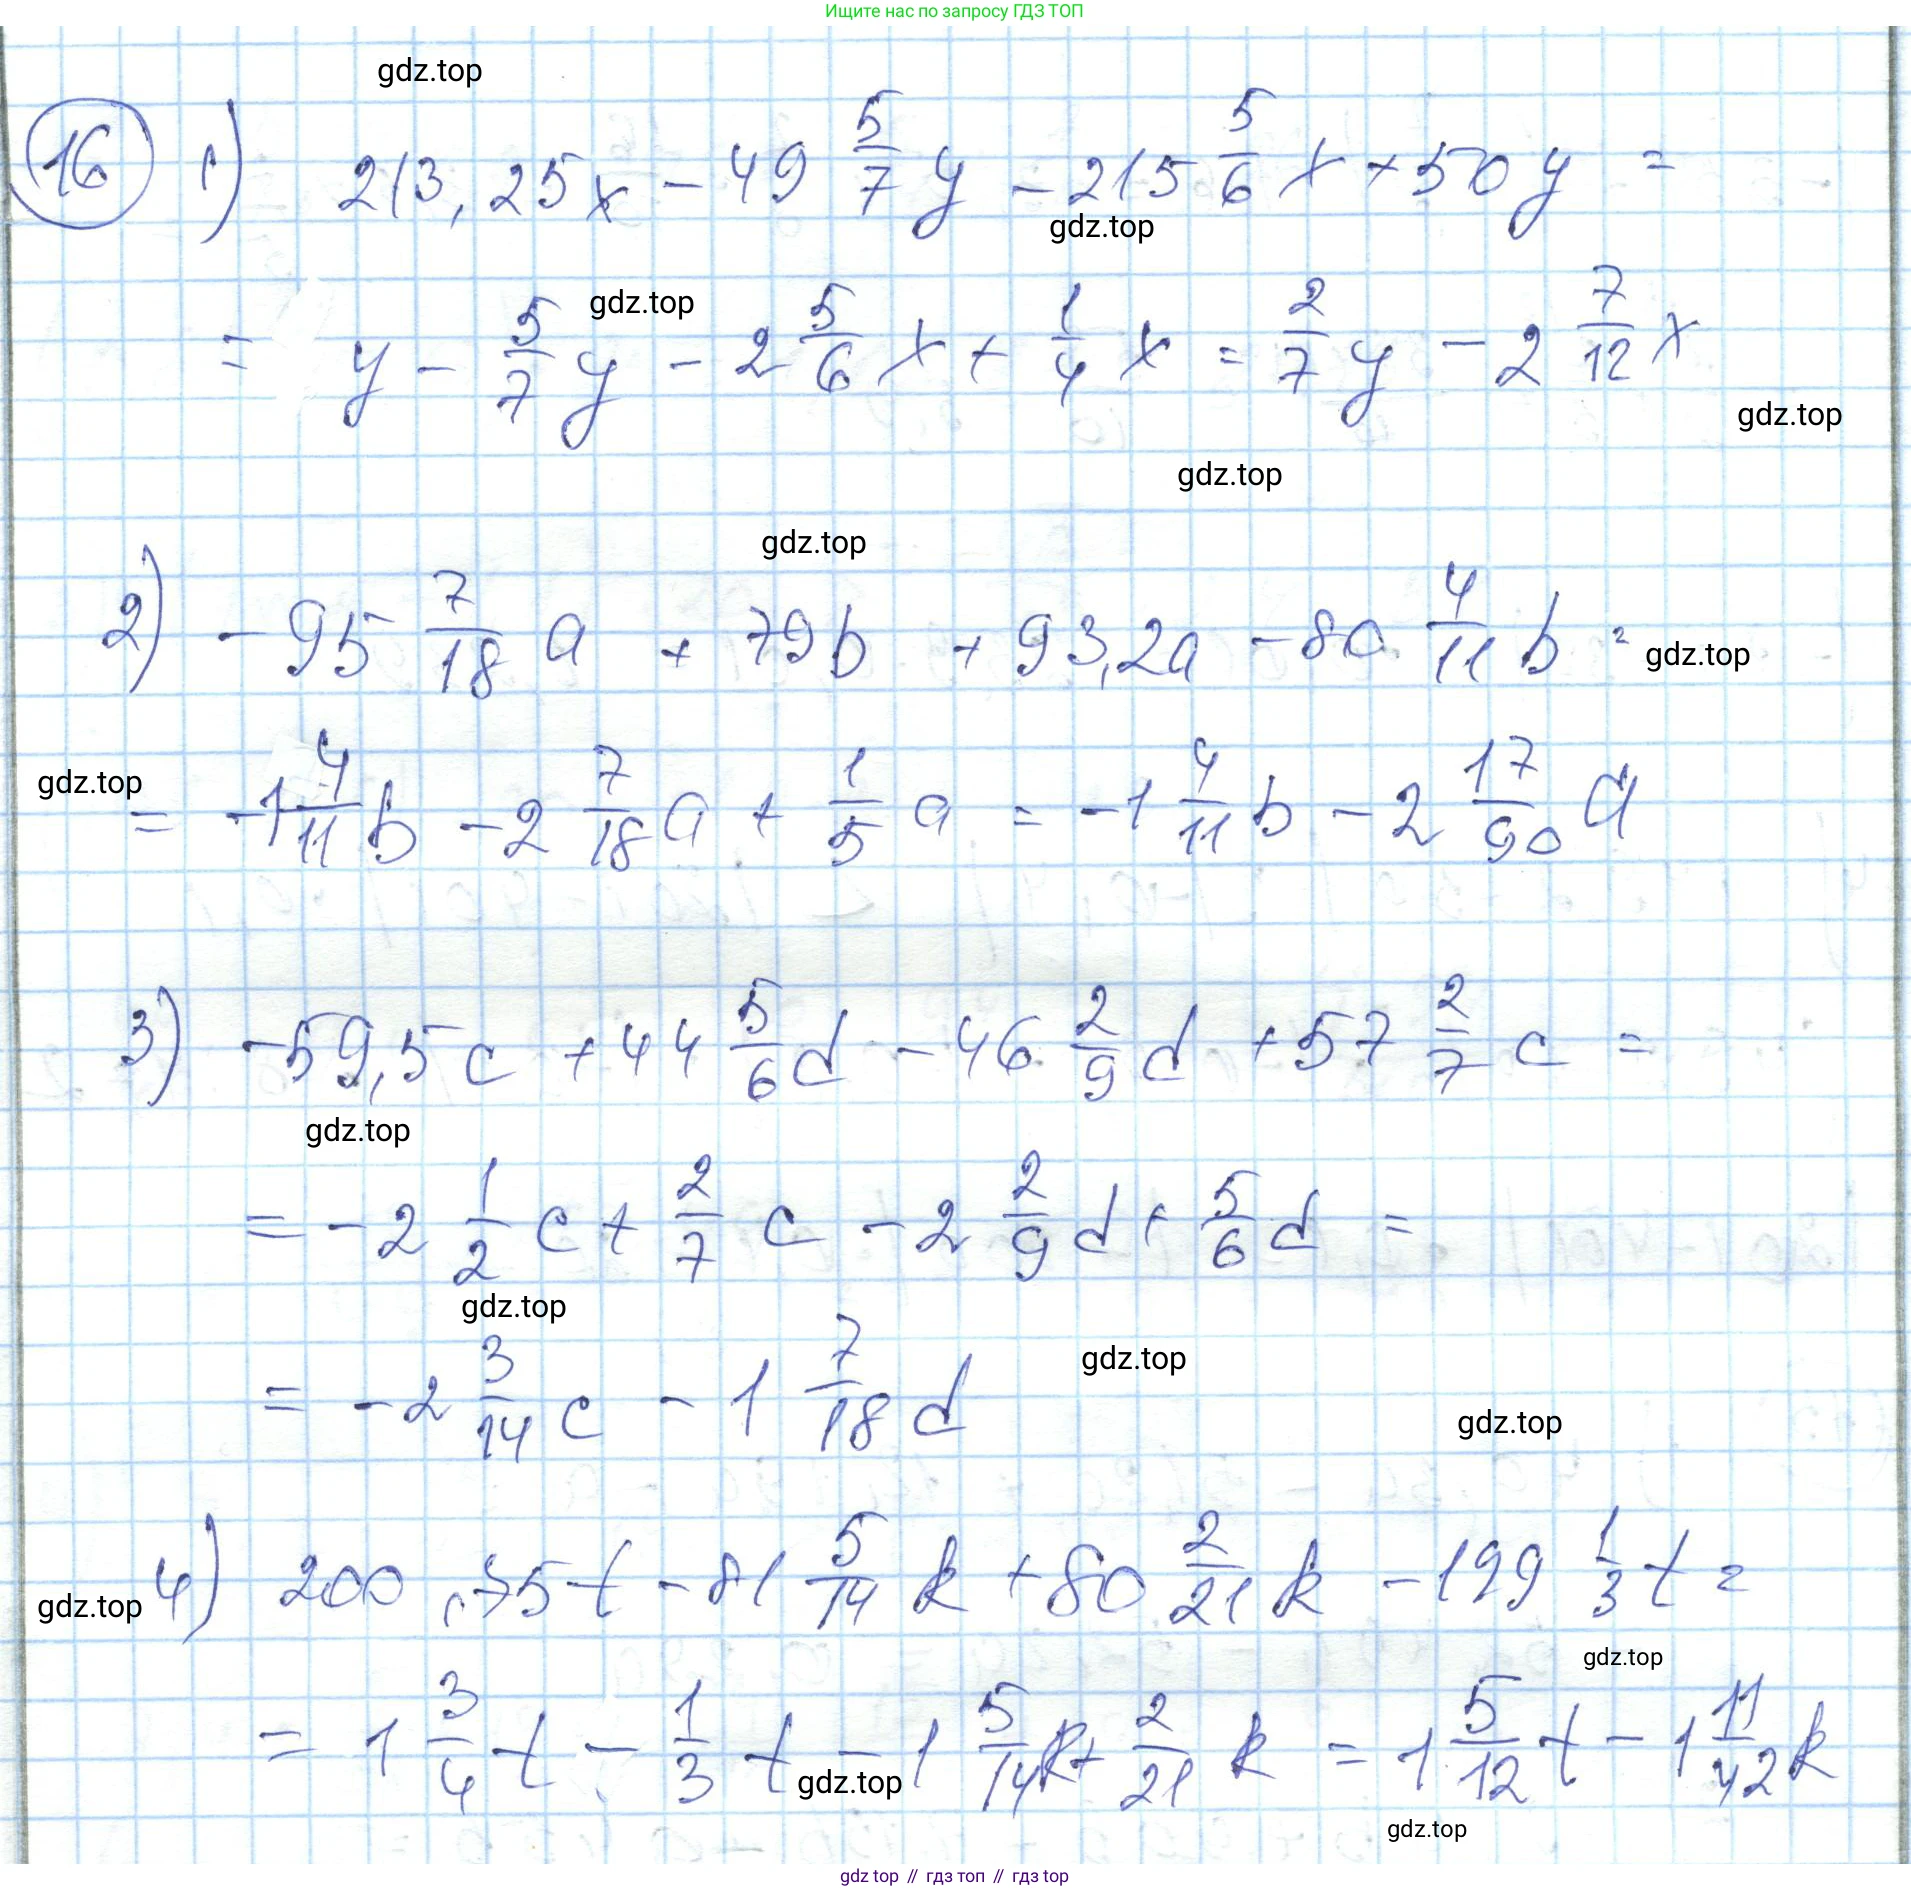 Ищите нас по запросу ГДЗ ТОП
gdz.top
16 1) 213,25x - 49 5/7 y - 215 5/6 x + 50y =
gdz.top
= y - 5/7 y - 2 5/6 x + 1/4 x = 2/7 y - 2 7/12 x
gdz.top
gdz.top
gdz.top
gdz.top
2) -95 7/18 a + 79b + 93,2a - 80 4/11 b =
gdz.top
= -1 4/11 b - 2 7/18 a + 1/5 a = -1 4/11 b - 2 17/90 a
gdz.top
3) -59,5c + 44 5/6 d - 46 2/9 d + 57 2/7 c =
gdz.top
= -2 1/2 c + 2/7 c - 2 2/9 d + 5/6 d =
gdz.top
= -2 3/14 c - 1 7/18 d
gdz.top
gdz.top
4) 200,75t - 81 5/14 k + 80 2/21 k - 199 1/3 t =
gdz.top
gdz.top
= 1 3/4 t - 1/3 t - 1 5/14 k + 2/21 k = 1 5/12 t - 1 11/42 k
gdz.top
gdz.top
gdz top // гдз топ // гдз top